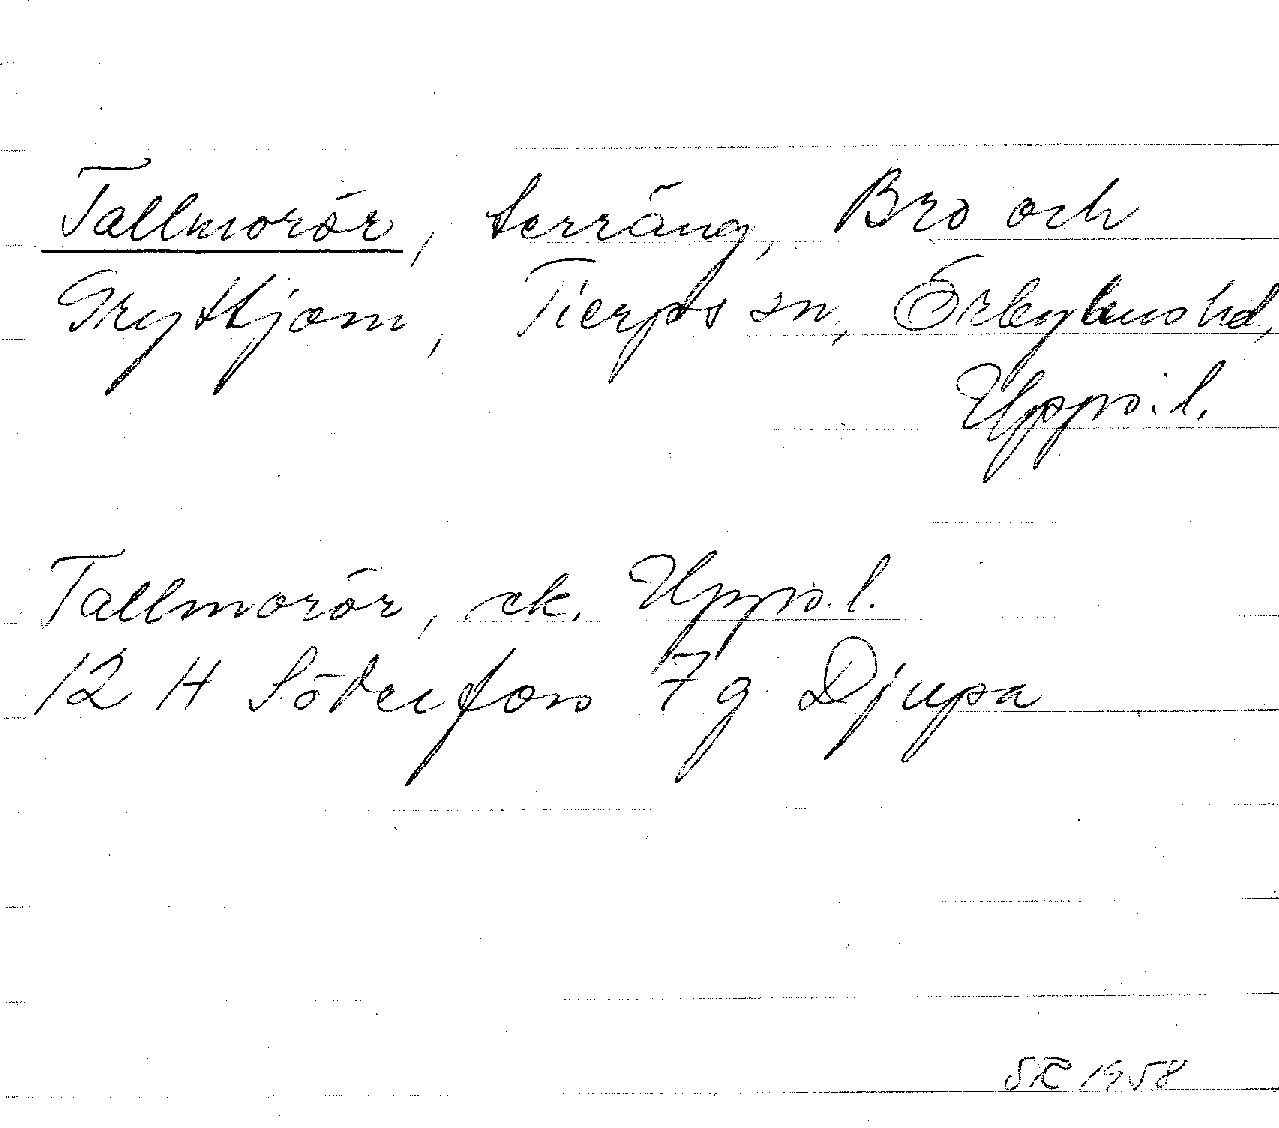 Tallmorör, terräng, Bro och
Gryttjom, Tierps sn, Örbyhus hd,
Upps. l.
Tallmorör, ek. Upps. l.
12 H Söderfors 7 g Djupa
1958